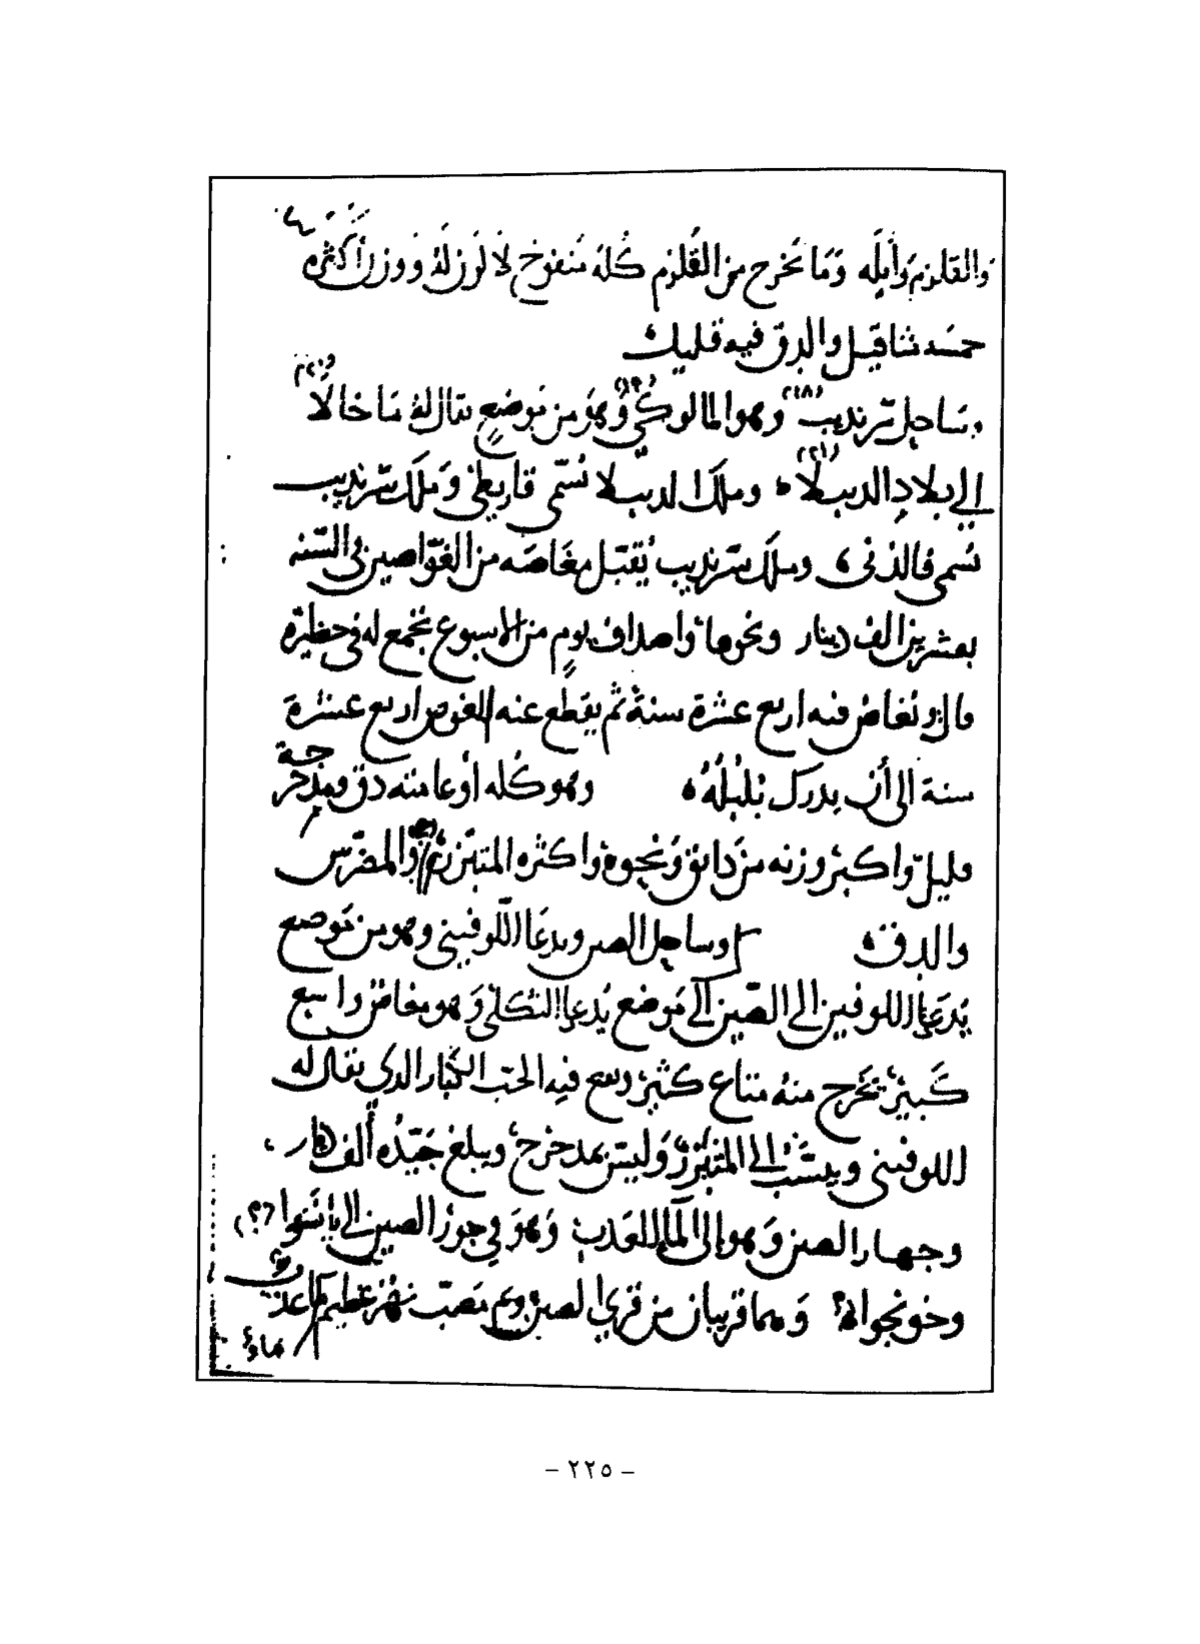 والقلزم وأيله وما يخرج من القلزم كله منفوخ لا لون له ووزن أكثره
خمسه مثاقيل والدق فيه قليل
وساحل سرنديب (٢١٨) وهو المالوكي (٢١٩) وهو من موضع يقال له ماخالا (٢٢٠)
إلى بلاد الديبلا (٢٢١) وملك الديبلا يسمى قاريطى وملك سرنديب
يسمى وملك سرنديب يقبل مغاصه من الغواصين في السنه
بعشرين الف دينار ونحوها واصداف يوم من الاسبوع تجمع له في حظيرة
قال ويغاص فيه اربع عشرة سنة ثم يقطع عنه الغوص اربع عشرة
سنة الى أن يدرك بلبله وهو كله أو عامته دق ومدحرجة
قليل واكبر وزنه من دانق ونحوه واكثره والمضرس
والدق وساحل الصين ويدعا اللوفيني وهو من موضع
يدعا اللوفين الى الصين الى موضع يدعا وهو مغاص واسع
كبير يخرج منه متاع كثير ويقع فيه الحب الكبار الذي يقال له
اللوفيني وينسب الى وليس بمدحرج ويبلغ جيده ألف دينار
الصين وهو الى الماء العذب وهو في جوز الصين الى (؟)
وهما قريبان من قرى الصين وثم مصب نهر عظيم عذب
ماؤه
- ٢٢٥ -